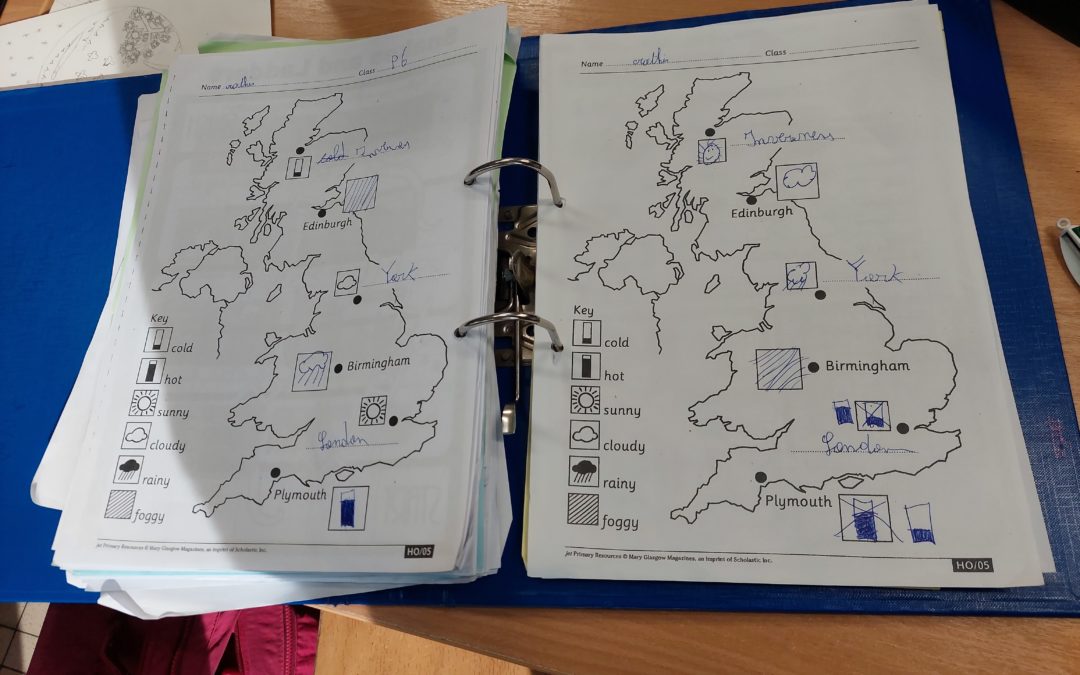 Name
Class P6
cold Inverness
Edinburgh
York
Key
cold
Birmingham
hot
sunny
cloudy
London
rainy
Plymouth
foggy
Jet Primary Resources © Mary Glasgow Magazines, an imprint of Scholastic Inc.
HO/05
Name
Class
Inverness
Edinburgh
York
Key
cold
Birmingham
hot
sunny
cloudy
London
rainy
Plymouth
foggy
Jet Primary Resources © Mary Glasgow Magazines, an imprint of Scholastic Inc.
HO/05